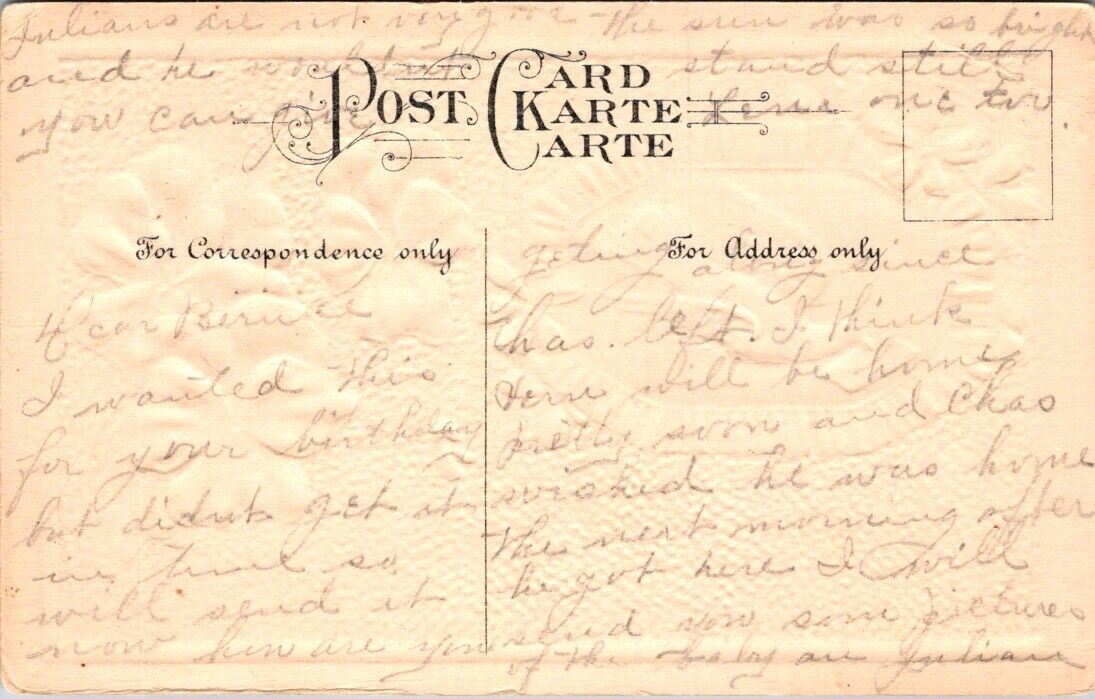 Julians are not very good - the sun was so bright
and he wouldnt stand still
you can give Verne one two.
POST CARD
KARTE
CARTE
For Correspondence only
For Address only
Dear Bernice
I wanted this
for your birthday
but didnt get it
in time so
will send it
now how are you
geting along since
Chas. left. I think
Verne will be home
pretty soon and Chas
wished he was home
the next morning after
he got here I will
send you som pictures
of the baby an Julian